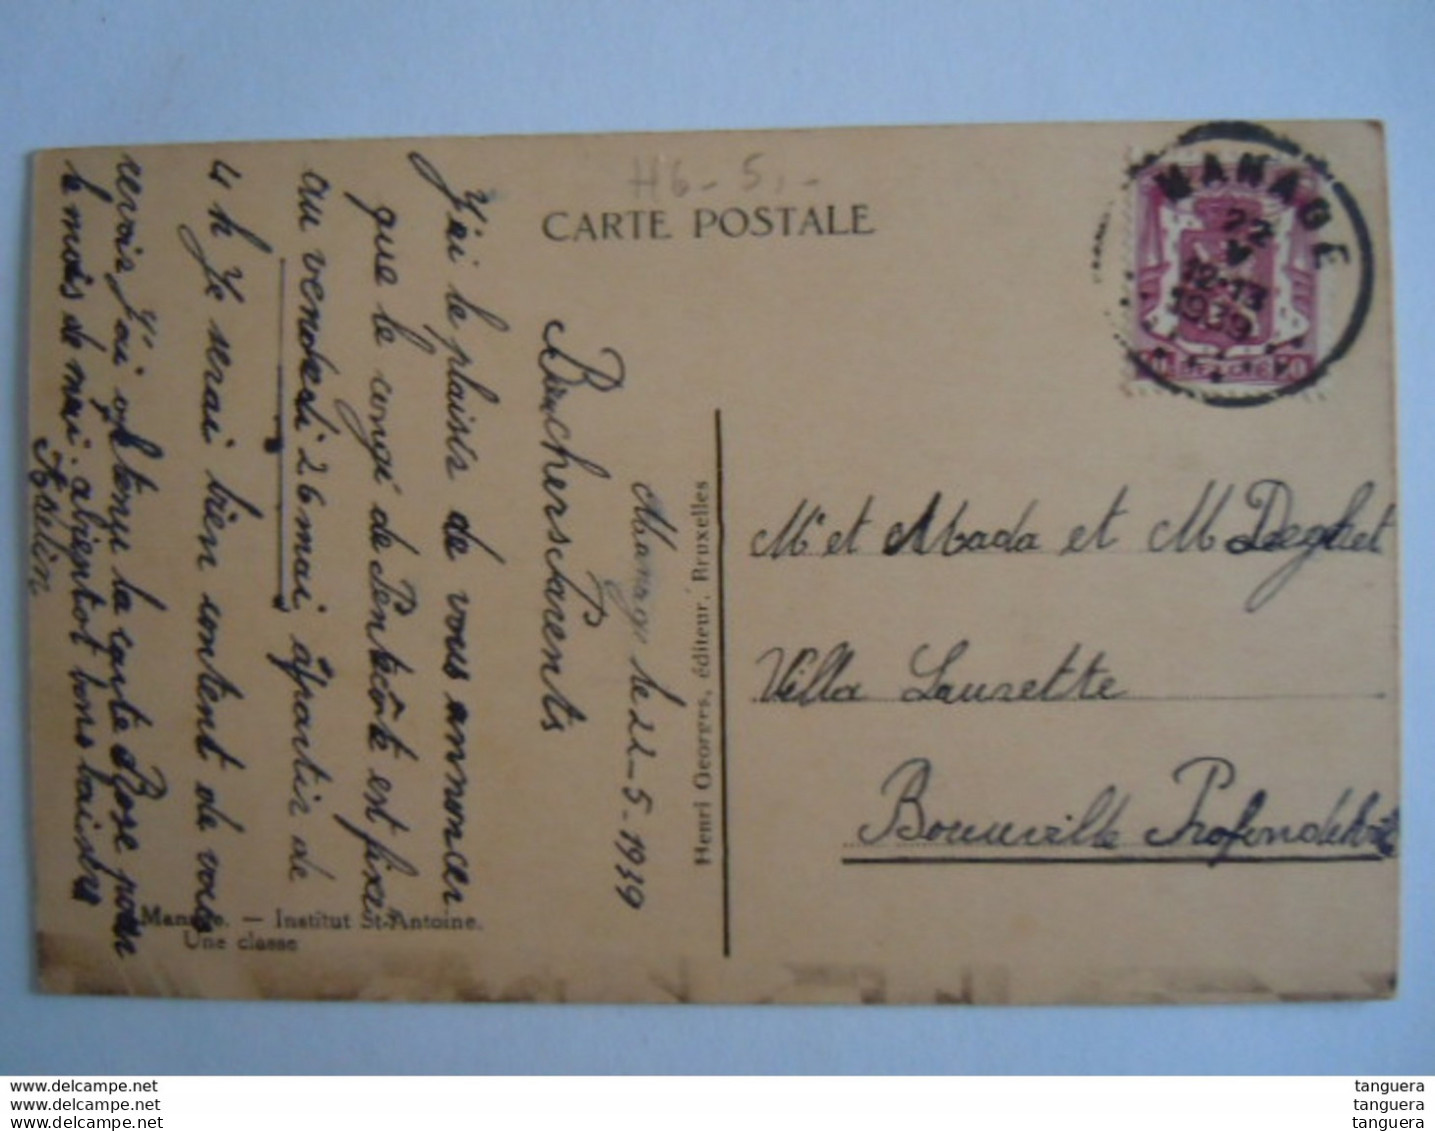 H6 - 5,-
CARTE POSTALE
MANAGE
22
V
12-13
1939
Manage le 22-5-1939
Bien chers Parents
J'ai le plaisir de vous annoncer
que le congé de Pentecôte est fixé
au vendredi 26 mai àpartir de
4 h Je serai bien content de vous
revoir J'ai obtenu la carte Rose pour
le mois de mai. abientot bons baisers
Henri Georges, éditeur, Bruxelles
Mr et Mada et M Deghet
Villa Laurette
Profondeville
Manage. — Institut St-Antoine.
Une classe
www.delcampe.net
www.delcampe.net
www.delcampe.net
tanguera
tanguera
tanguera